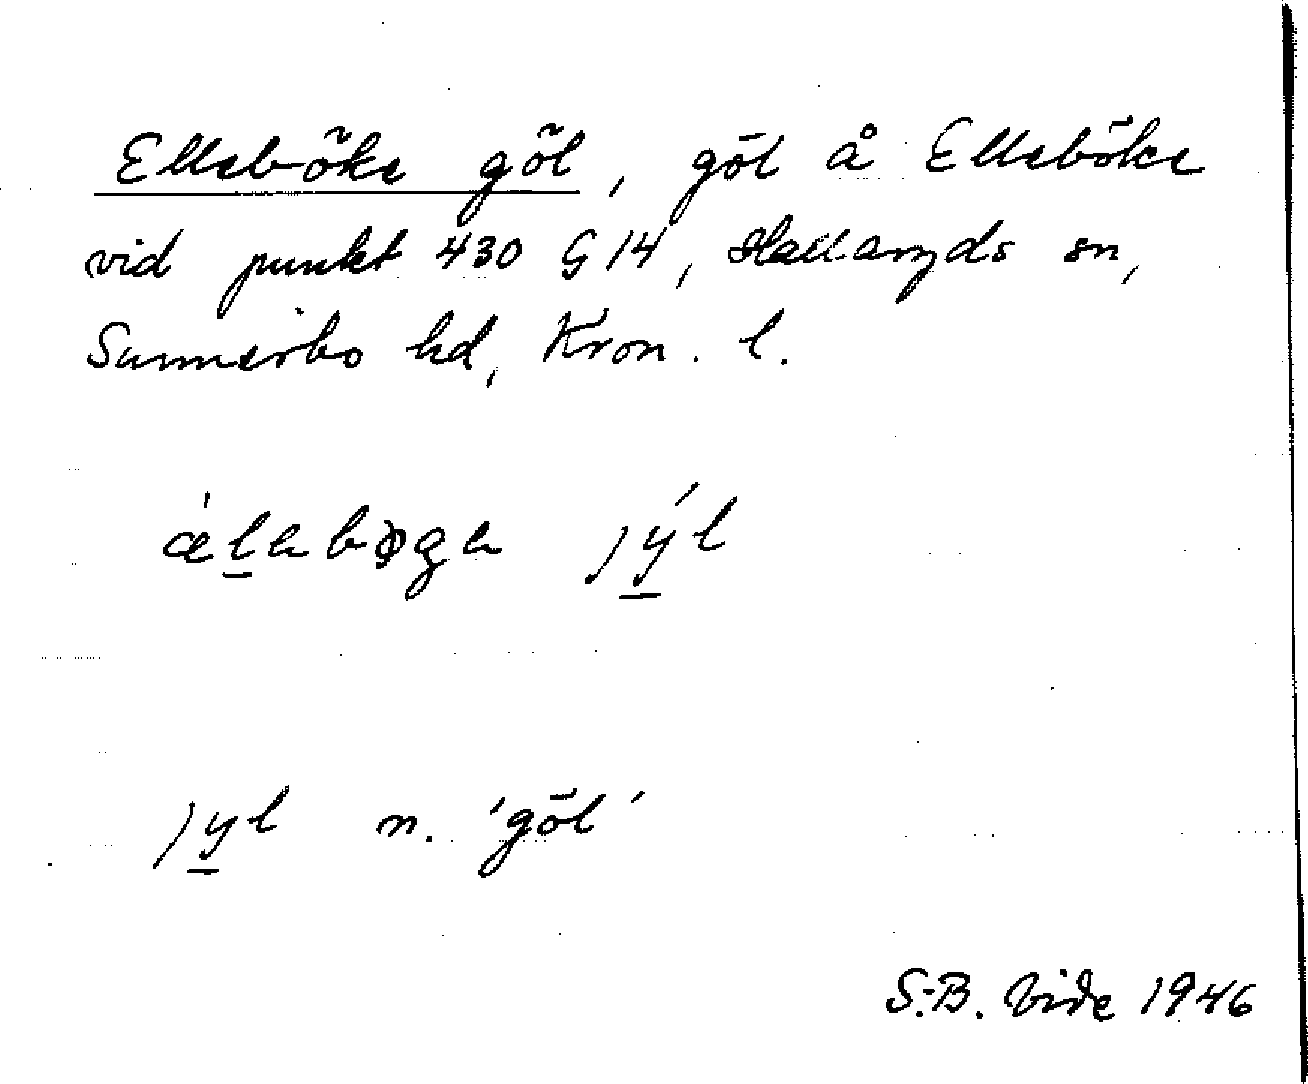 Elleböke göl, göl å Elleböke
vid punkt 430 G 14, Hallaryds sn,
Sunnerbo hd, Kron. l.
æ̍l̲abøga jý̲l
jy̲l n. 'göl'
S.-B. Vide 1946